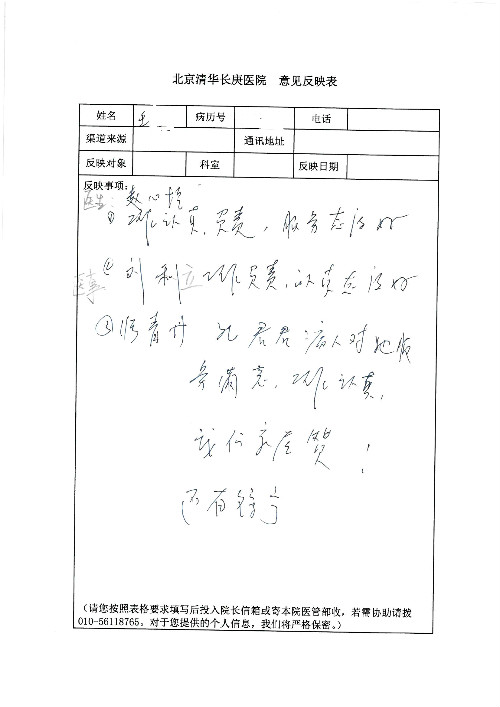 北京清华长庚医院 意见反映表
姓名 病历号 电话
渠道来源 通讯地址
反映对象 科室 反映日期
反映事项:
医生:
① 工作认真、负责,服务态度好
② 刘利 工作负责、认真态度好
③ 青 君君 病人对她服
务满意,工作认真,
我们 赞!
还有
(请您按照表格要求填写后投入院长信箱或寄本院医管部收,若需协助请拨
010-56118765。对于您提供的个人信息,我们将严格保密。)